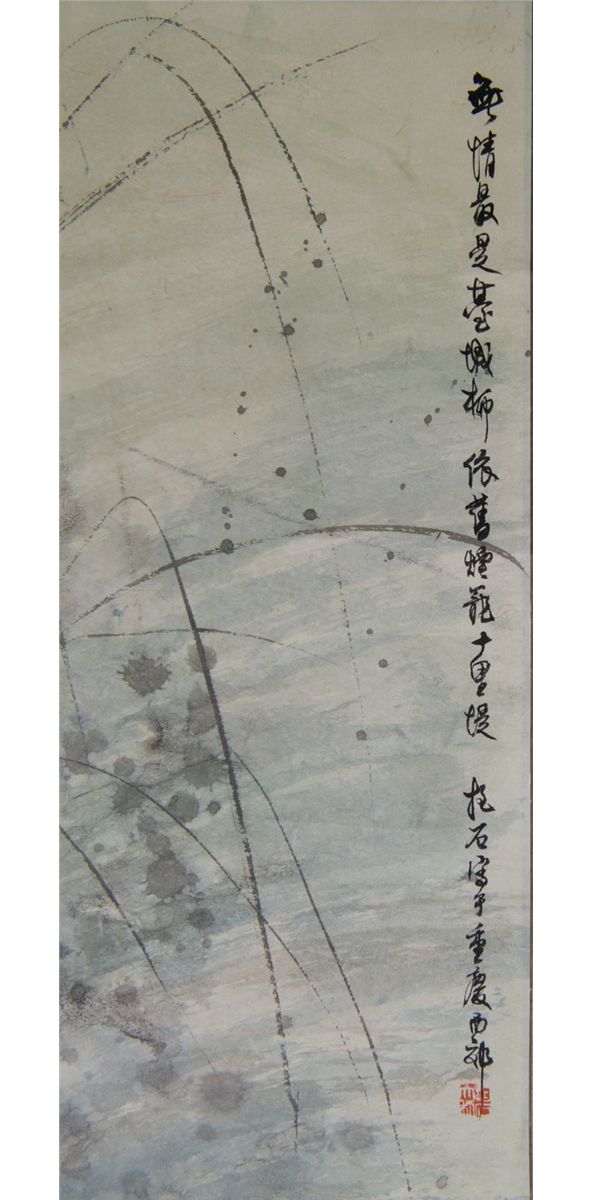 無情最是臺城柳依舊煙籠十里堤 柱石寫于重慶西郊